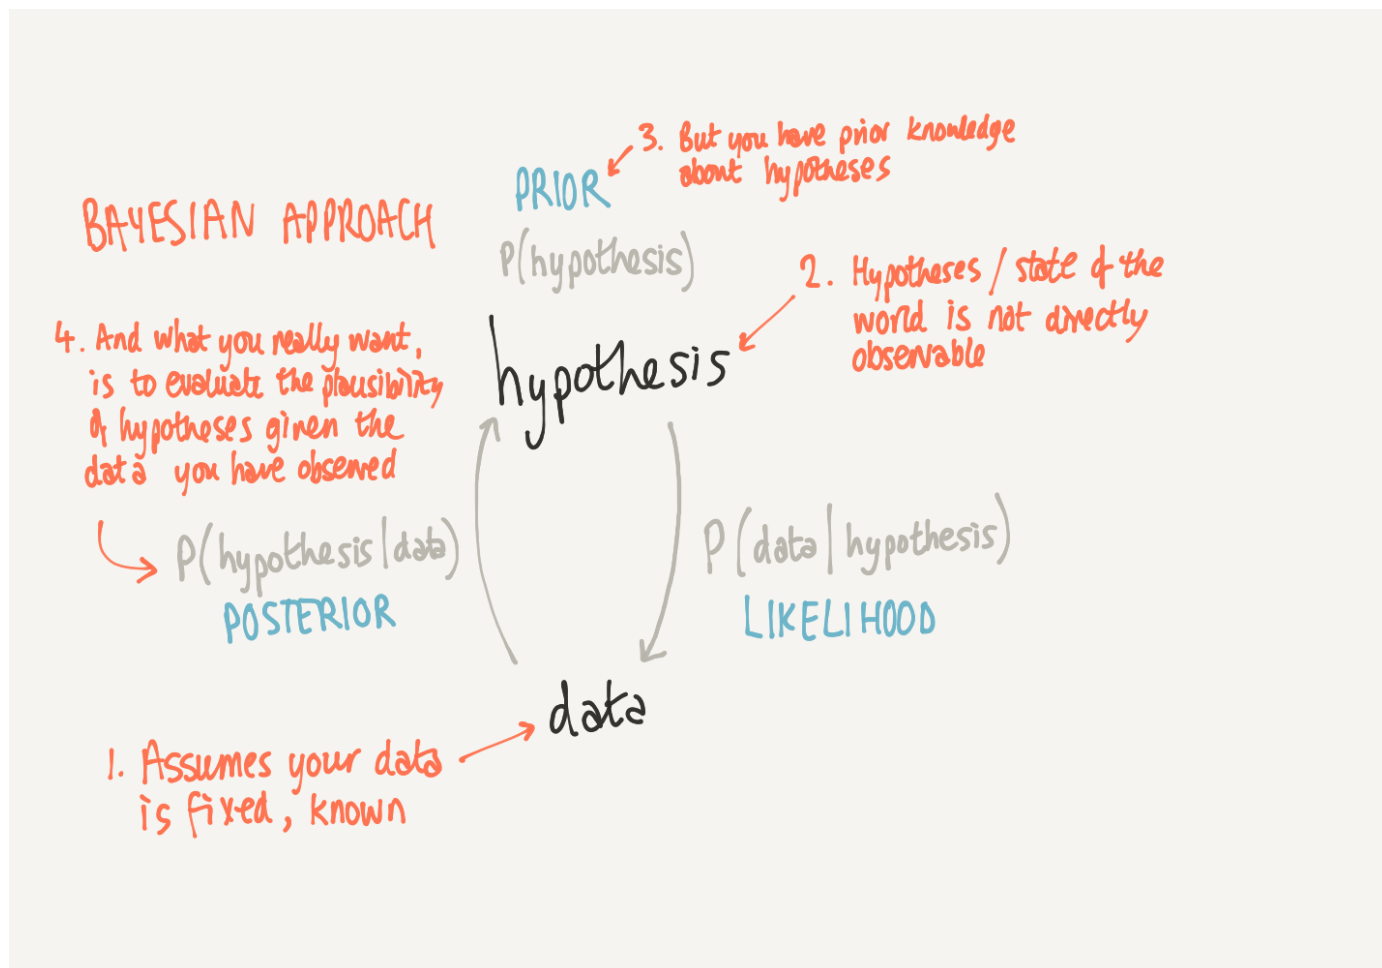 BAYESIAN APPROACH
3. But you have prior knowledge
about hypotheses
PRIOR
P(hypothesis)
2. Hypotheses / state of the
world is not directly
observable
hypothesis
4. And what you really want,
is to evaluate the plausibility
of hypotheses given the
data you have observed
P(hypothesis|data)
POSTERIOR
P(data|hypothesis)
LIKELIHOOD
data
1. Assumes your data
is fixed, known